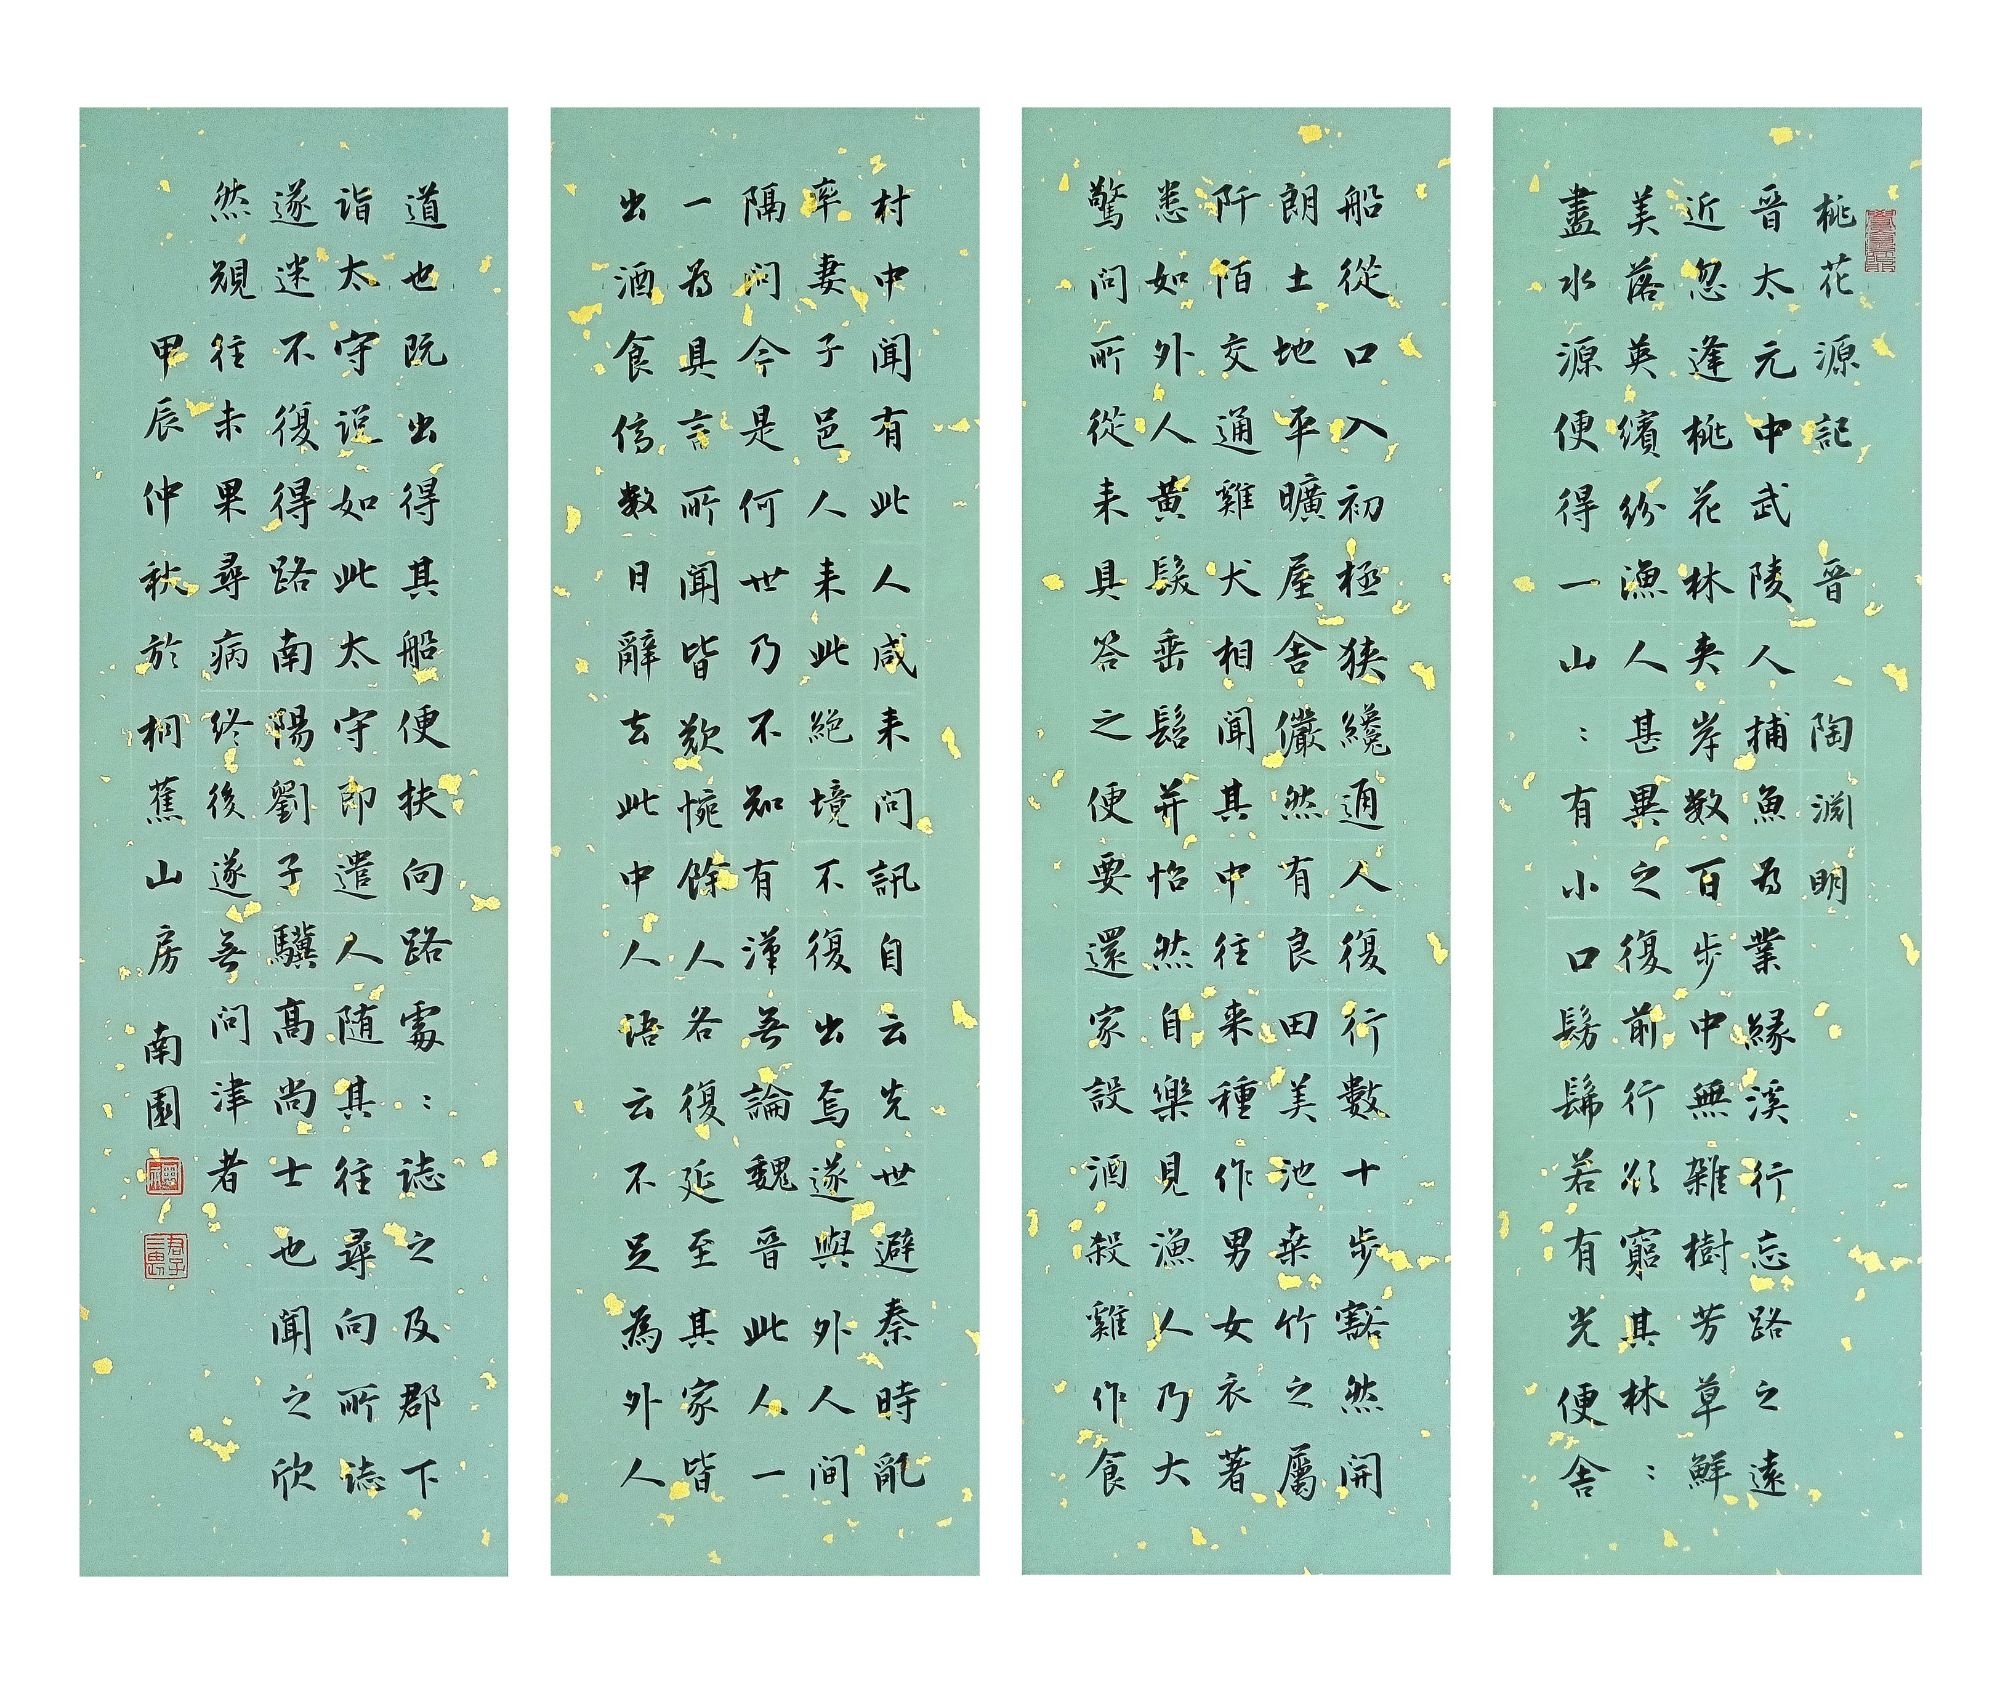 桃花源記 晋 陶淵明
晋太元中武陵人捕魚為業緣溪行忘路之遠
近忽逢桃花林夾岸数百步中無雜樹芳草鮮
美落英繽紛漁人甚異之復前行欲窮其林：
盡水源便得一山：有小口髣髴若有光便舍
船從口入初極狹纔通人復行數十步豁然開
朗土地平曠屋舍儼然有良田美池桒竹之屬
阡陌交通雞犬相聞其中往来種作男女衣著
悉如外人黄髮垂髫并怡然自樂見漁人乃大
驚問所從来具答之便要還家設酒殺雞作食
村中聞有此人咸来問訊自云先世避秦時亂
率妻子邑人来此絕境不復出焉遂與外人间
隔问今是何世乃不知有漢無論魏晉此人一
一為具言所聞皆歎惋餘人各復延至其家皆
出酒食停数日辭去此中人語云不足為外人
道也既出得其船便扶向路處：誌之及郡下
詣太守说如此太守即遣人随其往尋向所誌
遂迷不復得路南陽劉子驥高尚士也聞之欣
然規往未果尋病终後遂無問津者
甲辰仲秋於桐蕉山房 南園